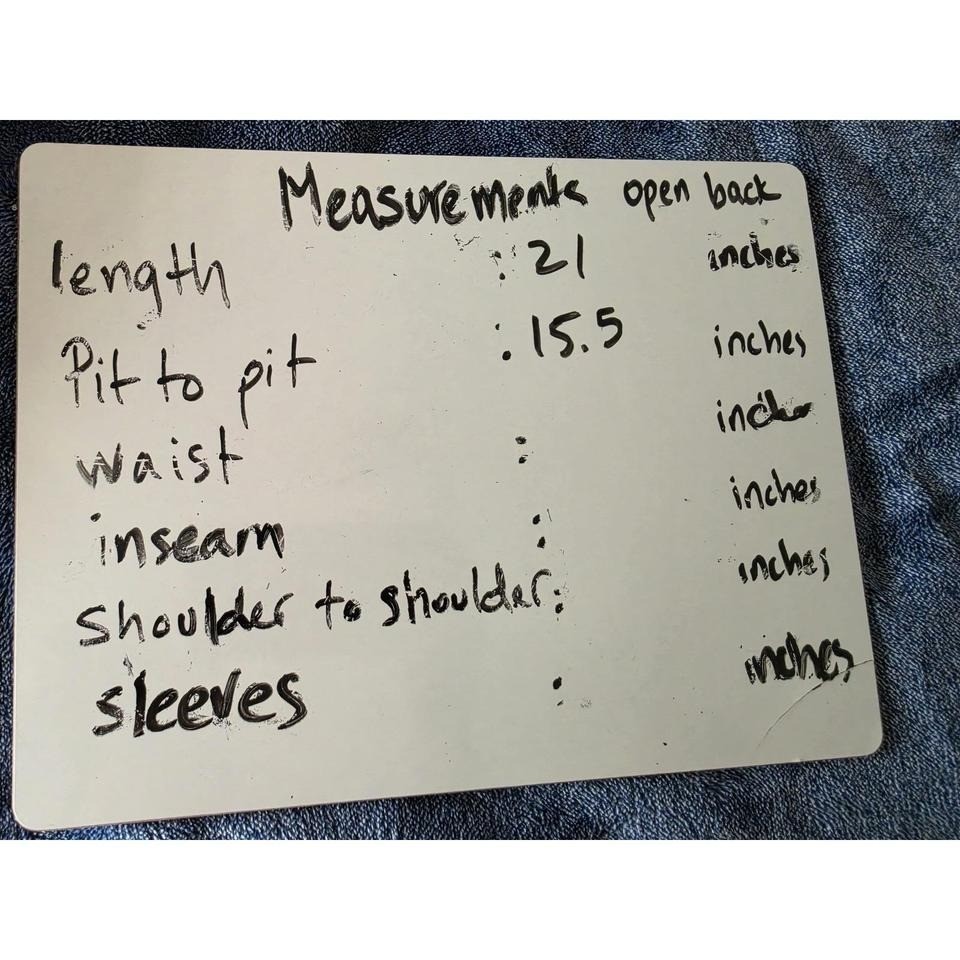 Measurements open back
length : 21 inches
Pit to pit : 15.5 inches
waist : inches
inseam : inches
shoulder to shoulder : inches
sleeves : inches